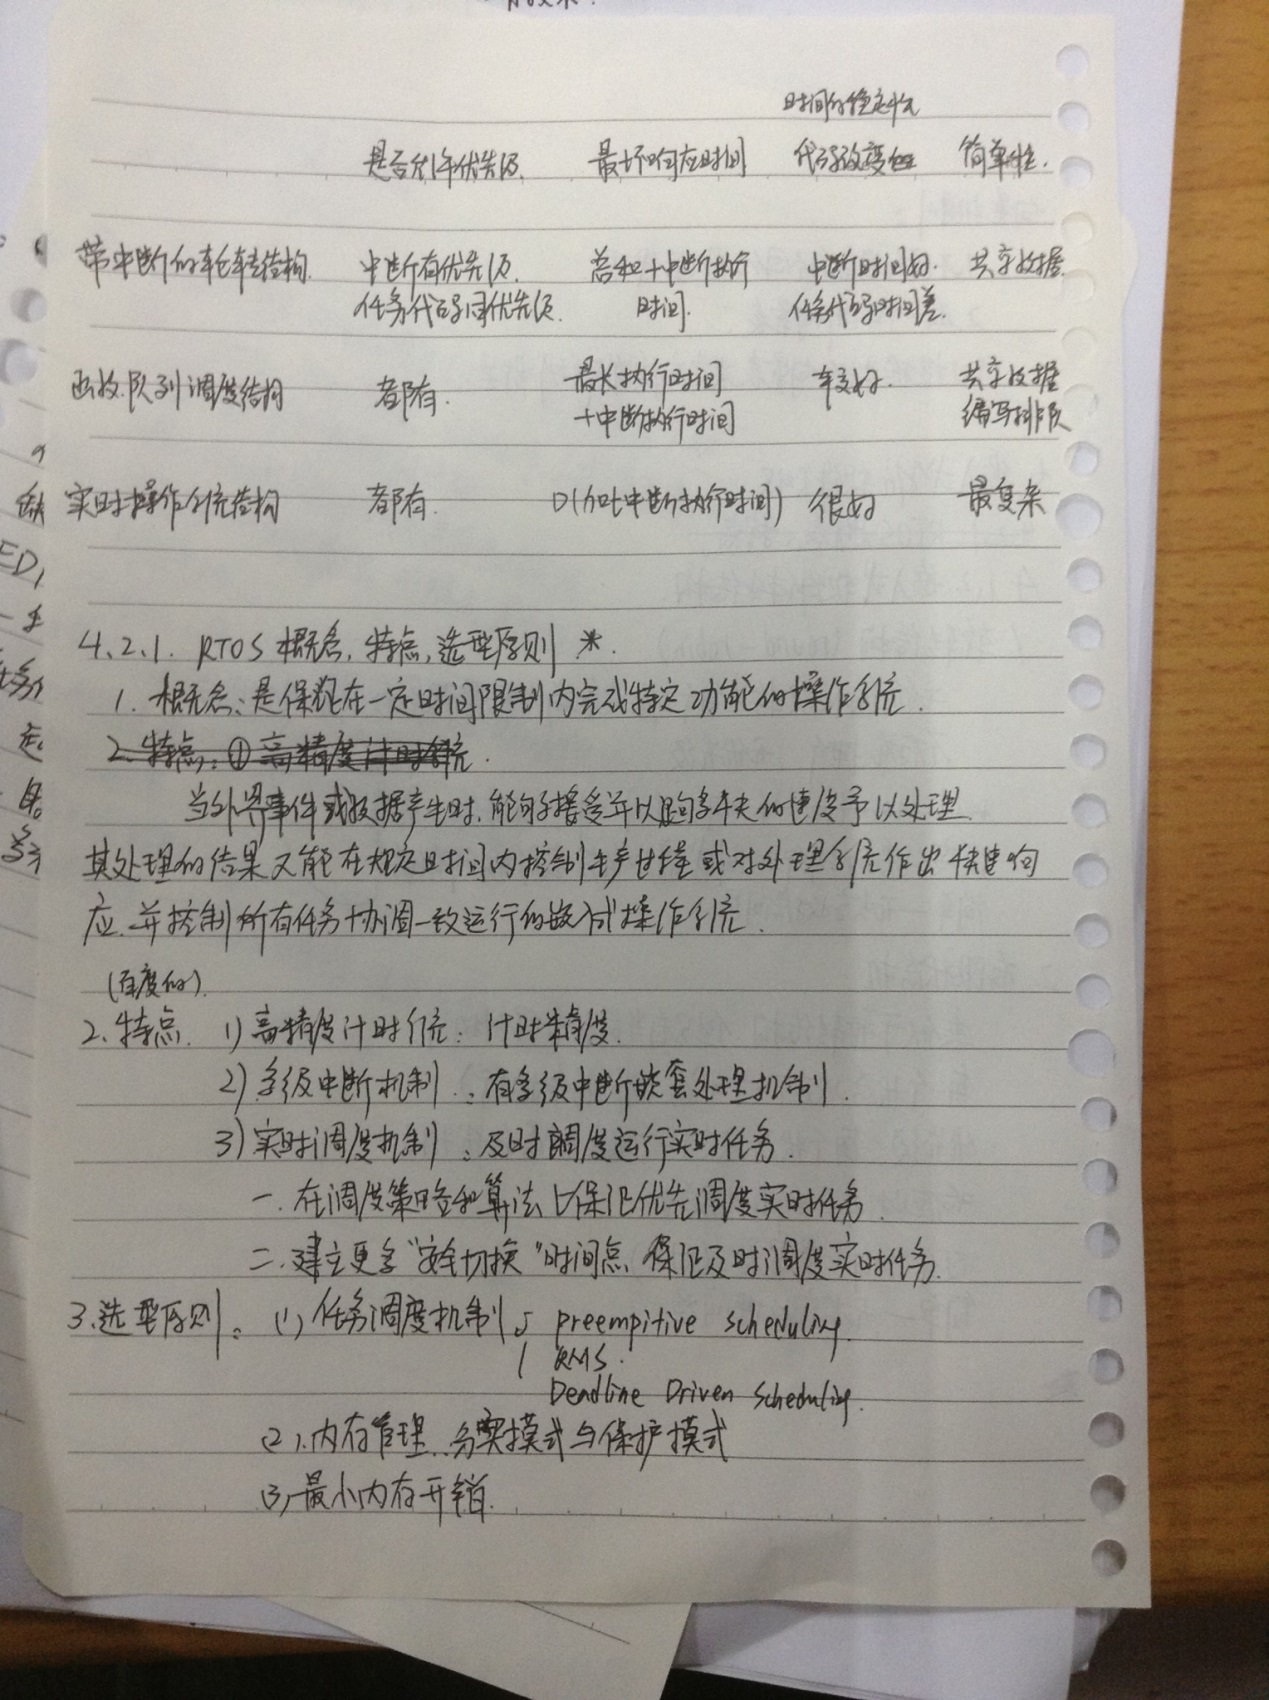 时间的稳定性
是否创建优先级 最坏响应时间 代码改变 简单性.
带中断的轮转结构 中断有优先级. 总和+中断执行 中断时间好. 共享数据
任务代码同优先级. 时间. 任务代码时间差.
函数队列调度结构 都有. 最长执行时间 较好. 共享数据
+中断执行时间 编写排队
实时操作系统结构 都有. 0(加上中断执行时间) 很好 最复杂
4.2.1. RTOS 概念, 特点, 选型原则 *.
1. 概念: 是保证在一定时间限制内完成特定功能的操作系统.
2. 特点: ① 高精度计时系统.
当外界事件或数据产生时, 能够接受并以足够快的速度予以处理
其处理的结果又能在规定时间内控制生产过程或对处理系统作出快速响
应, 并控制所有任务协调一致运行的嵌入式操作系统.
(百度的).
2. 特点. 1) 高精度计时系统: 计时精度.
2) 多级中断机制: 有多级中断嵌套处理机制.
3) 实时调度机制: 及时调度运行实时任务.
一. 在调度策略和算法上保证优先调度实时任务.
二. 建立更多“安全切换”时间点, 保证及时调度实时任务.
3. 选型原则: (1) 任务调度机制 preempitive scheduling.
RMS.
Deadline Driven Scheduling.
(2). 内存管理. 分实模式与保护模式
(3) 最小内存开销.